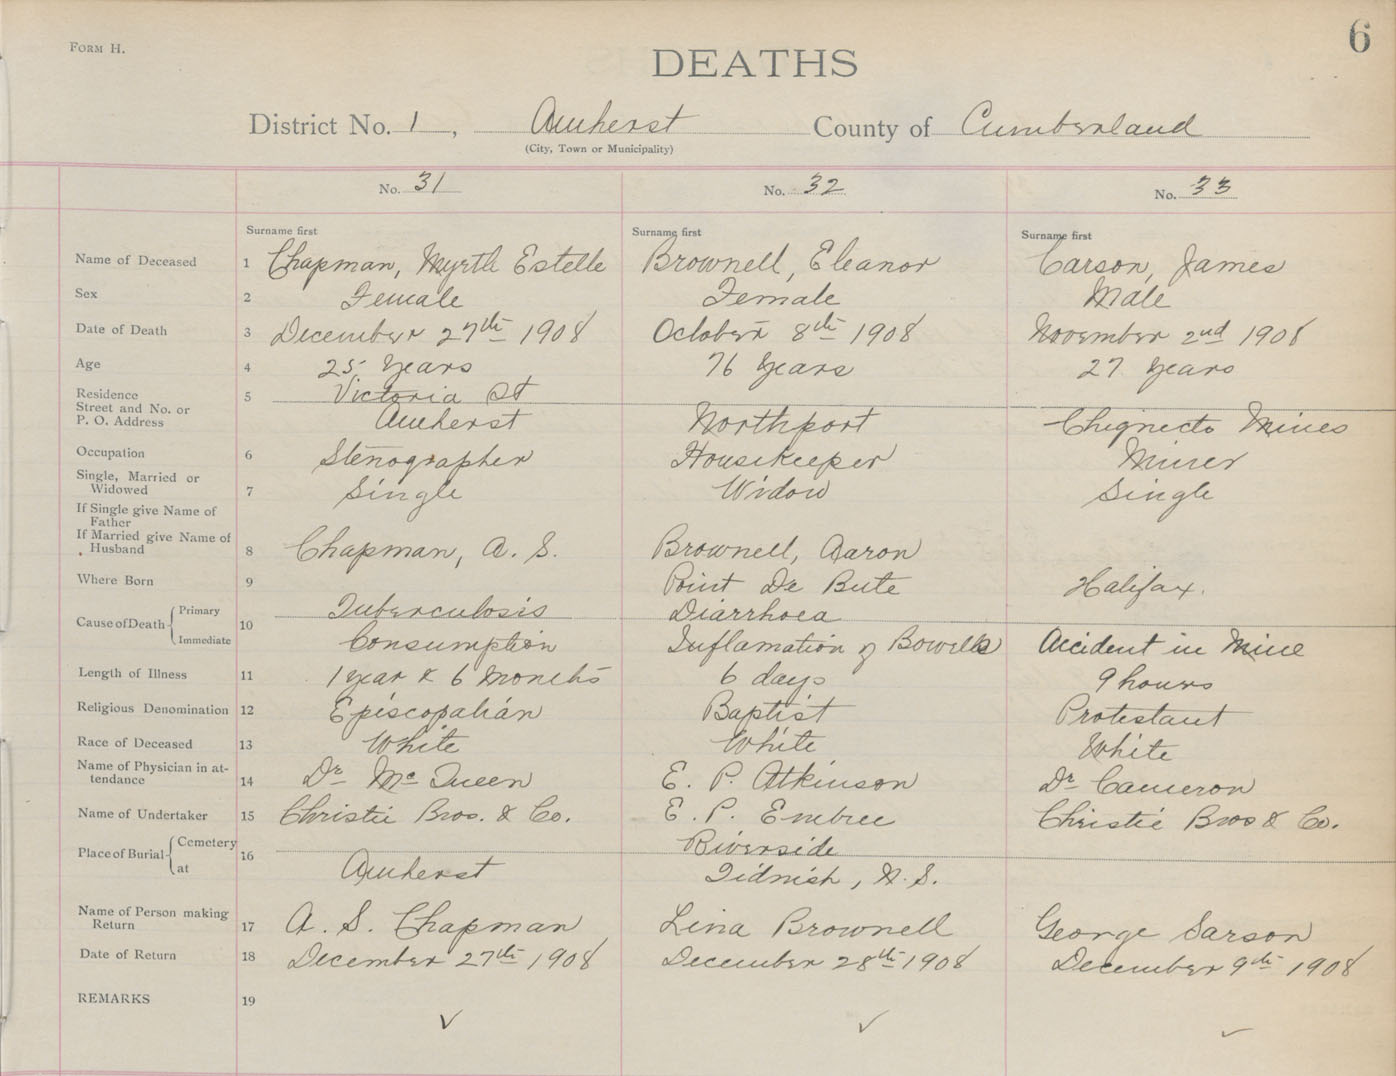 6
FORM H.
DEATHS
District No. 1, Amherst County of Cumberland
(City, Town or Municipality)
No. 31 No. 32 No. 33
Surname first Surname first Surname first
Name of Deceased 1 Chapman, Myrtle Estelle Brownell, Eleanor Carson, James
Sex 2 Female Female Male
Date of Death 3 December 27th 1908 October 8th 1908 November 2nd 1908
Age 4 25 Years 76 Years 27 Years
Residence 5 Victoria St
Street and No. or
P. O. Address Amherst Northport Chignecto Mines
Occupation 6 Stenographer Housekeeper Miner
Single, Married or
Widowed 7 Single Widow Single
If Single give Name of
Father
If Married give Name of
Husband 8 Chapman, A. S. Brownell, Aaron
Where Born 9 Point De Bute Halifax.
Cause of Death Primary 10 Tuberculosis Diarrhoea
Immediate Consumption Inflamation of Bowells Accident in Mine
Length of Illness 11 1 year & 6 Months 6 days 9 hours
Religious Denomination 12 Episcopalian Baptist Protestant
Race of Deceased 13 White White White
Name of Physician in at-
tendance 14 Dr Mc Queen E. P. Atkinson Dr Cameron
Name of Undertaker 15 Christie Bros. & Co. E. P. Embree Christie Bros & Co.
Place of Burial Cemetery 16 Riverside
at Amherst Tidnish, N. S.
Name of Person making
Return 17 A. S. Chapman Lina Brownell George Sarson
Date of Return 18 December 27th 1908 December 28th 1908 December 9th 1908
REMARKS 19